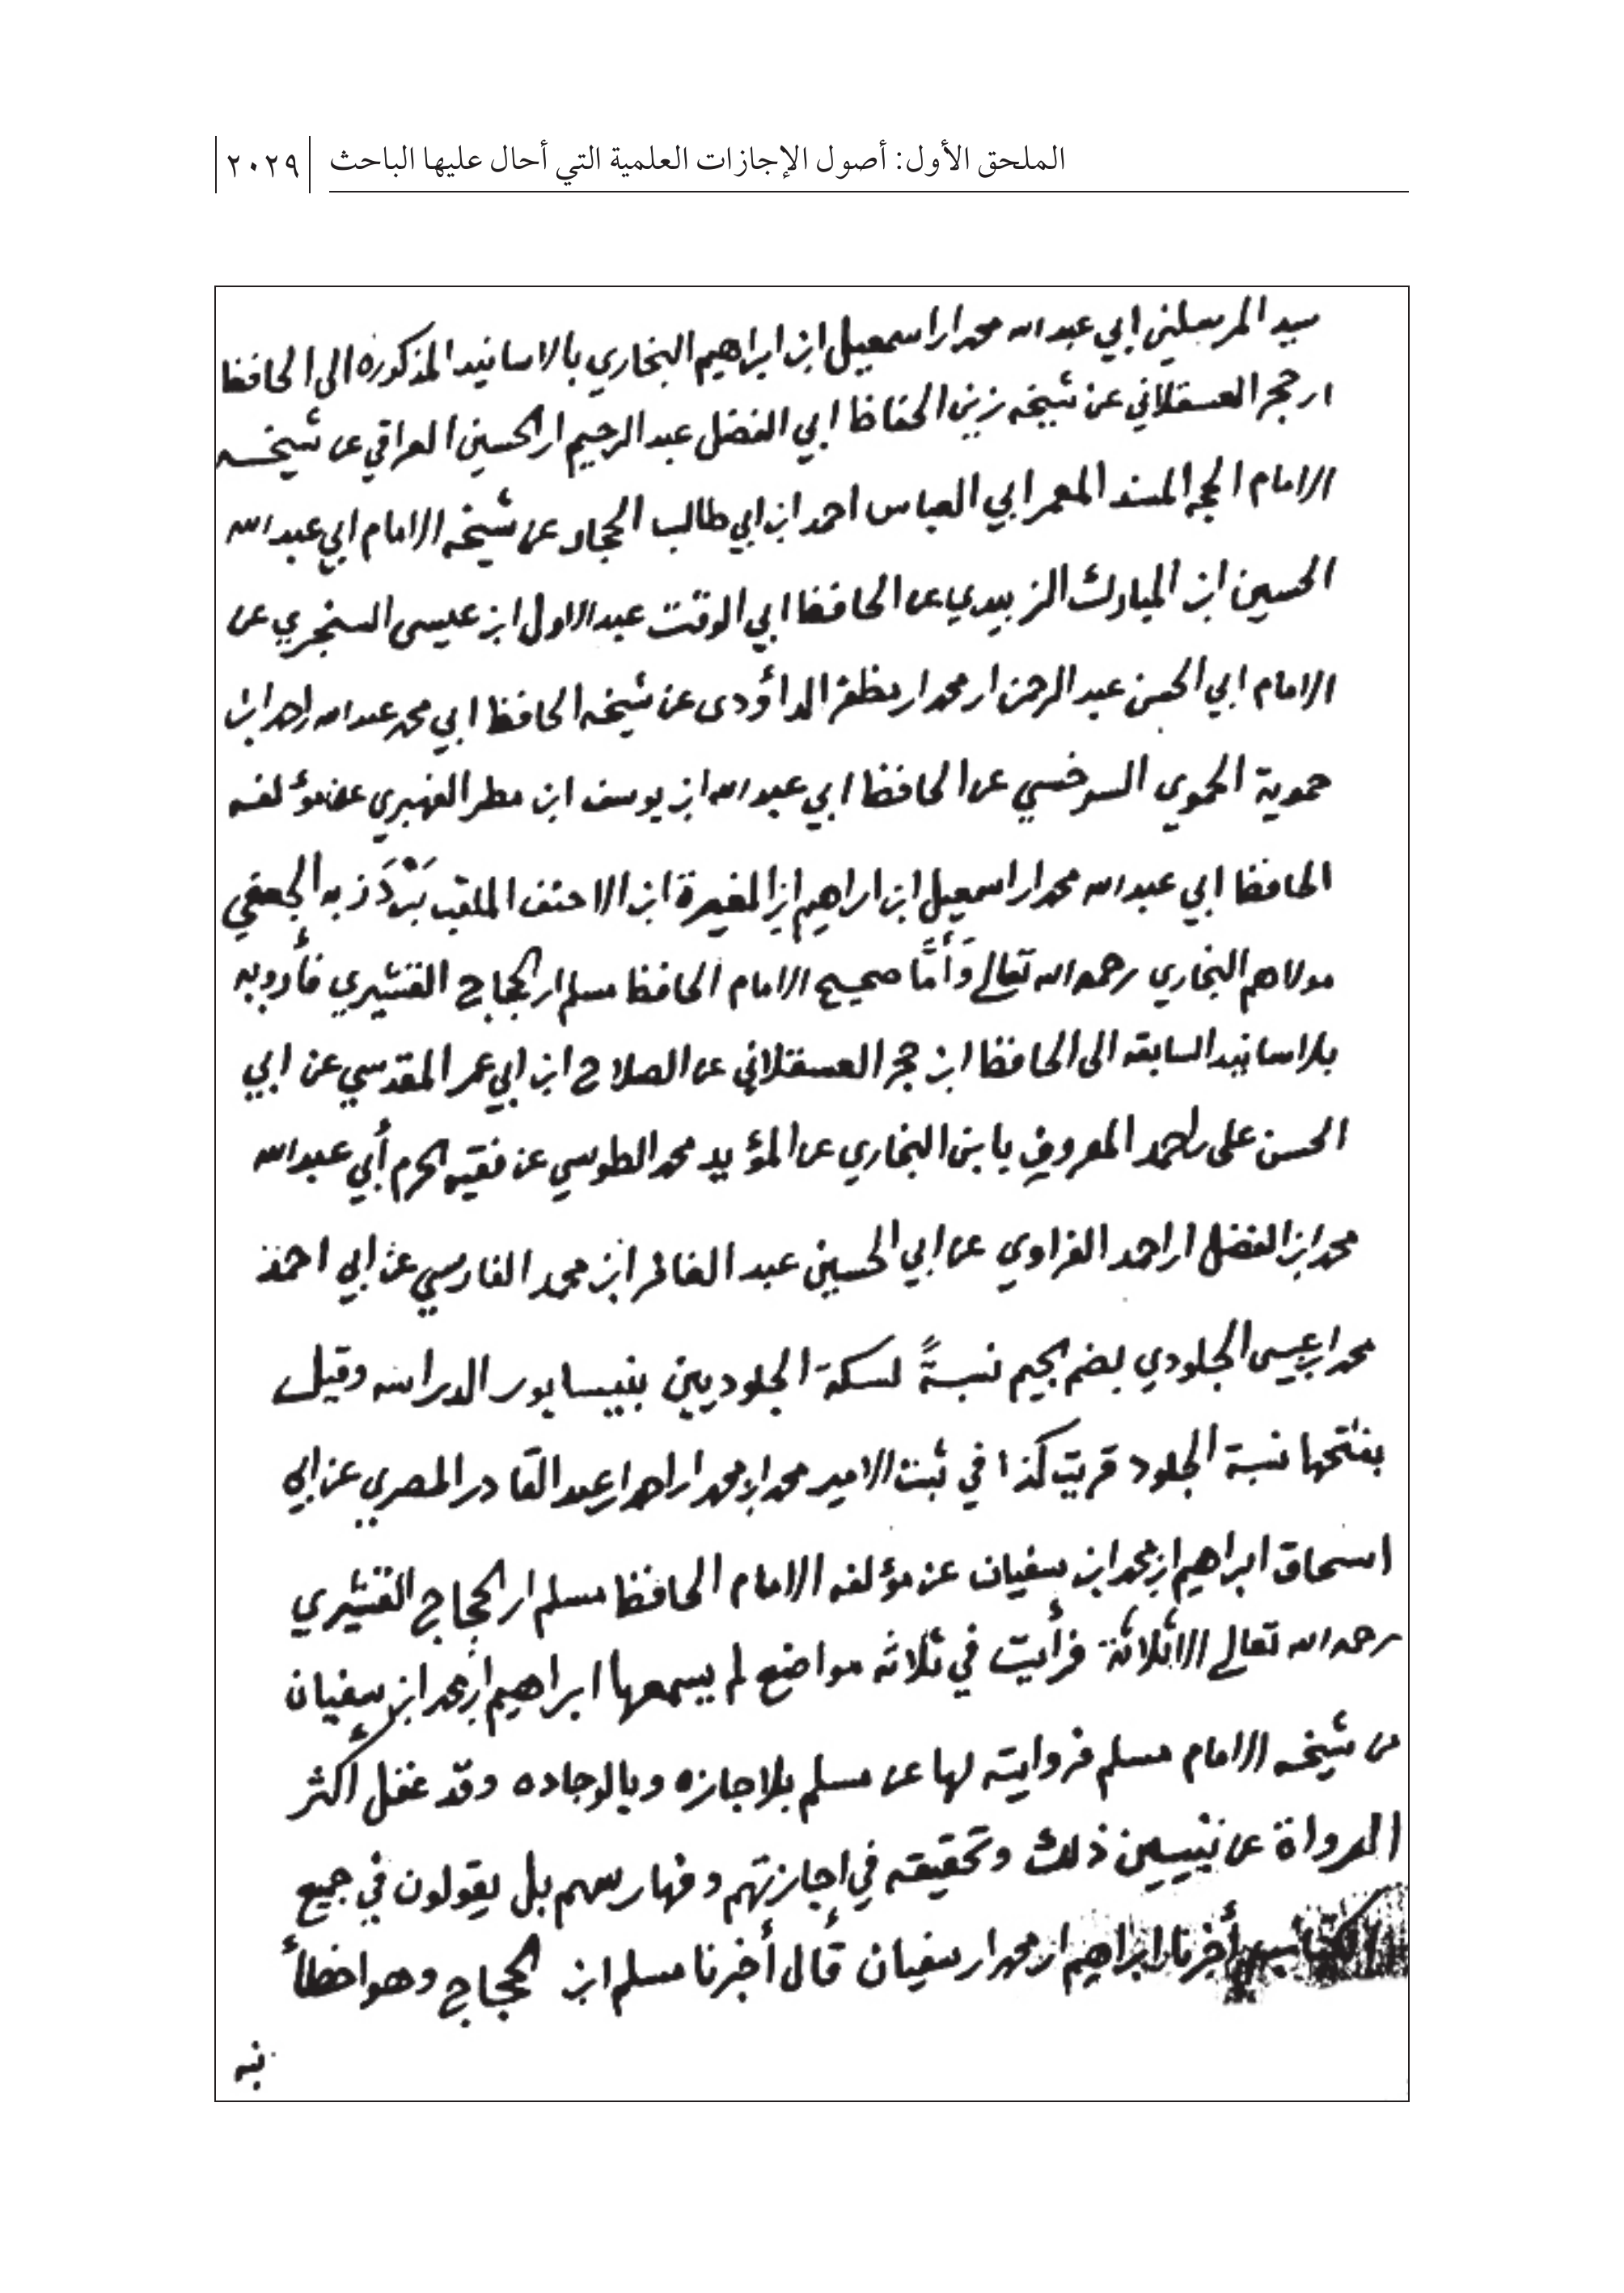 الملحق الأول: أصول الإجازات العلمية التي أحال عليها الباحث ٢٠٢٩
سيد المرسلين ابي عبد الله محمد ابن اسمعيل ابن ابراهيم البخاري بالاسانيد المذكوره الى الحافظ
ابن حجر العسقلاني عن شيخه زين الحفاظ ابي الفضل عبد الرحيم ابن الحسين العراقي عن شيخه
الامام الحجه المسند المعمر ابي العباس احمد ابن ابي طالب الحجار عن شيخه الامام ابي عبد الله
الحسين ابن المبارك الزبيدي عن الحافظ ابي الوقت عبد الاول ابن عيسى السنجري عن
الامام ابي الحسن عبد الرحمن ابن محمد ابن مظفر الداؤدى عن شيخه الحافظ ابي محمد عبد الله احمد ابن
حموية الحموي السرخسي عن الحافظ ابي عبد الله ابن يوسف ابن مطر الفهبري عن مؤلفه
الحافظ ابي عبد الله محمد ابن اسمعيل ابن ابراهيم ابن المغيرة ابن الاحنف الملقب بَرْدَزبه الجعفي
مولاهم البخاري رحمه الله تعالى وَأَمَّا صحيح الامام الحافظ مسلم ابن الحجاج القشيري فأرويه
بلاسانيد السابقه الى الحافظ ابن حجر العسقلاني عن الصلاح ابن ابي عمر المقدسي عن ابي
الحسن على احمد المعروف بابن البخاري عن المؤيد محمد الطوسي عن فقيه الحرم أبي عبد الله
محمد ابن الفضل ابن احمد الفراوي عن ابي الحسين عبد الغافر ابن محمد الفارسي عن ابي احمد
محمد ابن عيسى الجلودي بضم الجيم نسبةً لسكة الجلوديين بنيسابور الدراسه وقيل
بفتحها نسبة الجلود قرية كذا في ثبت الامير محمد ابن محمد ابن احمد ابن عبد القادر المصري عن ابي
اسحاق ابراهيم ابن محمد ابن سفيان عن مؤلفه الامام الحافظ مسلم ابن الحجاج القشيري
رحمه الله تعالى الاثلاثة فرأيت في ثلاثه مواضع لم يسمعها ابراهيم ابن محمد ابن سفيان
من شيخه الامام مسلم فروايته لها عن مسلم بلاجازه وبالوجاده وقد غفل أكثر
الرواة عن تبيين ذلك وتحقيقه في اجازتهم وفهارسهم بل يقولون في جميع
أخبرنا ابراهيم ابن محمد ابن سفيان قال أخبرنا مسلم ابن الحجاج وهو اخطأ
نبه